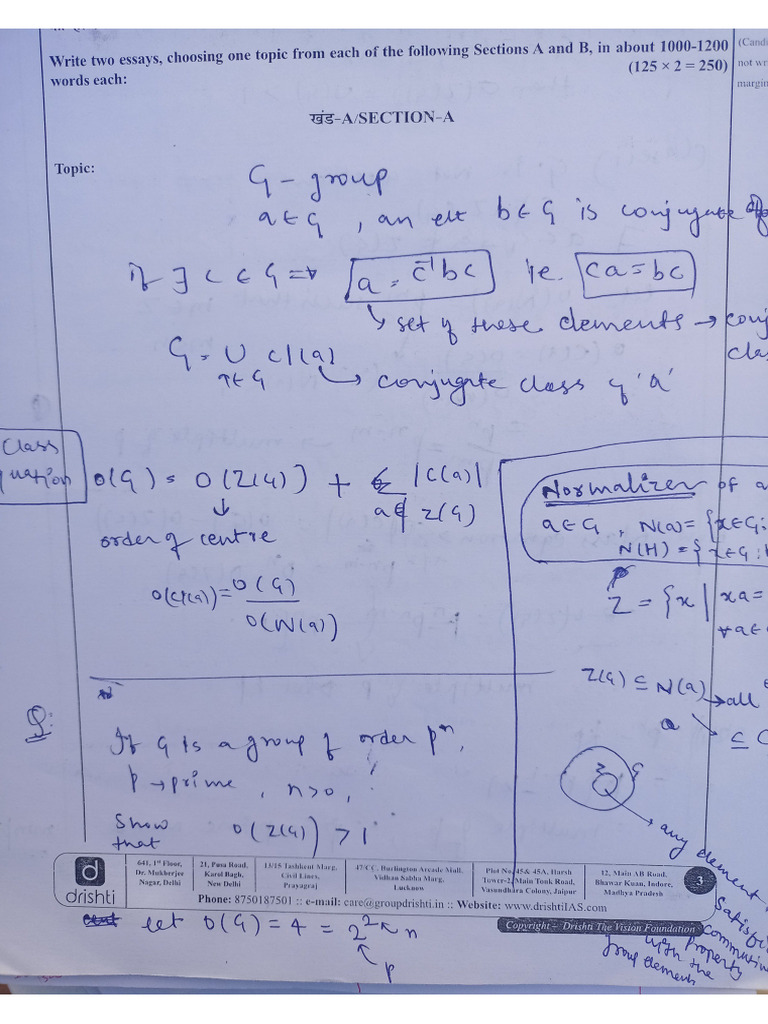 Write two essays, choosing one topic from each of the following Sections A and B, in about 1000-1200
words each: (125 × 2 = 250)
(Candi
not wr
margin
खंड-A/SECTION-A
Topic:
G - group
a ∈ G , an elt b ∈ G is conjugate of
if ∃ c ∈ G ⇒ a = c⁻¹bc ie. ca = bc
↳ set of these elements → conj
clas
G = ∪ cl(a)
a∈G ↳ conjugate class of 'a'
Class
quation
O(G) = O(Z(G)) + Σ |C(a)|
a∉Z(G)
↓
order of centre
O(Cl(a)) = O(G)
O(N(a))
Normalizer of a
a∈G , N(a) = {x∈G:
N(H) = {x∈G :
Z = {x | xa =
∀a∈
Z(G) ⊆ N(a) → all
a ⊆ C
Z G
any element
Satisfie
commutin
property
with the
group elements
Q:
If G is a group of order pⁿ,
p → prime , n>0 ,
Show O(Z(G)) > 1
that
drishti
641, 1st Floor,
Dr. Mukherjee
Nagar, Delhi
21, Pusa Road,
Karol Bagh,
New Delhi
13/15 Tashkent Marg,
Civil Lines,
Prayagraj
47/CC, Burlington Arcade Mall,
Vidhan Sabha Marg,
Lucknow
Plot No. 45 & 45A, Harsh
Tower-2, Main Tonk Road,
Vasundhara Colony, Jaipur
12, Main AB Road,
Bhawar Kuan, Indore,
Madhya Pradesh
3
Phone: 8750187501 :: e-mail: care@groupdrishti.in :: Website: www.drishtiIAS.com
Copyright – Drishti The Vision Foundation
let O(G) = 4 = 2² ← n
↑
p